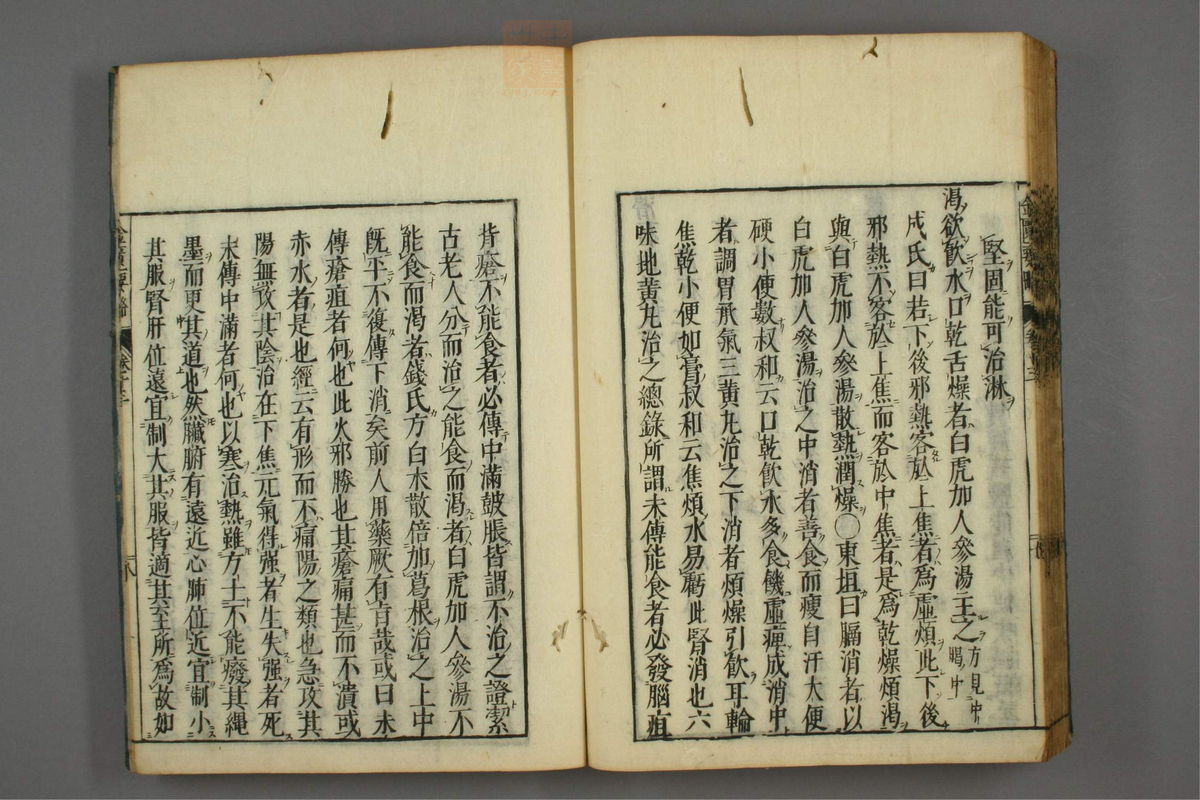 堅固能可治淋
渇欲飲水口乾舌燥者白虎加人參湯主之方見中暍中
成氏曰若下後邪熱客於上焦者爲虛煩此下後
邪熱不客於上焦而客於中焦者是爲乾燥煩渇
與白虎加人參湯散熱潤燥○東垣曰膈消者以
白虎加人參湯治之中消者善食而瘦自汗大便
硬小便數叔和云口乾飲水多食饑虛癉成消中
者調胃承氣三黃丸治之下消者煩燥引飲耳輪
焦乾小便如膏叔和云焦煩水易虧此腎消也六
味地黃丸治之總錄所謂未傳能食者必發腦疽
背瘡不能食者必傳中滿皷脹皆謂不治之證潔
古老人分而治之能食而渇者白虎加人參湯不
能食而渇者錢氏方白朮散倍加葛根治之上中
旣平不復傳下消矣前人用藥厥有旨哉或曰未
傳瘡疽者何也此火邪勝也其瘡痛甚而不潰或
赤水者是也經云有形而不痛陽之類也急攻其
陽無攻其陰治在下焦元氣得强者生失强者死
末傳中滿者何也以寒治熱雖方士不能廢其繩
墨而更其道也然臟腑有遠近心肺位近宜制小
其服腎肝位遠宜制大其服皆適其至所爲故如